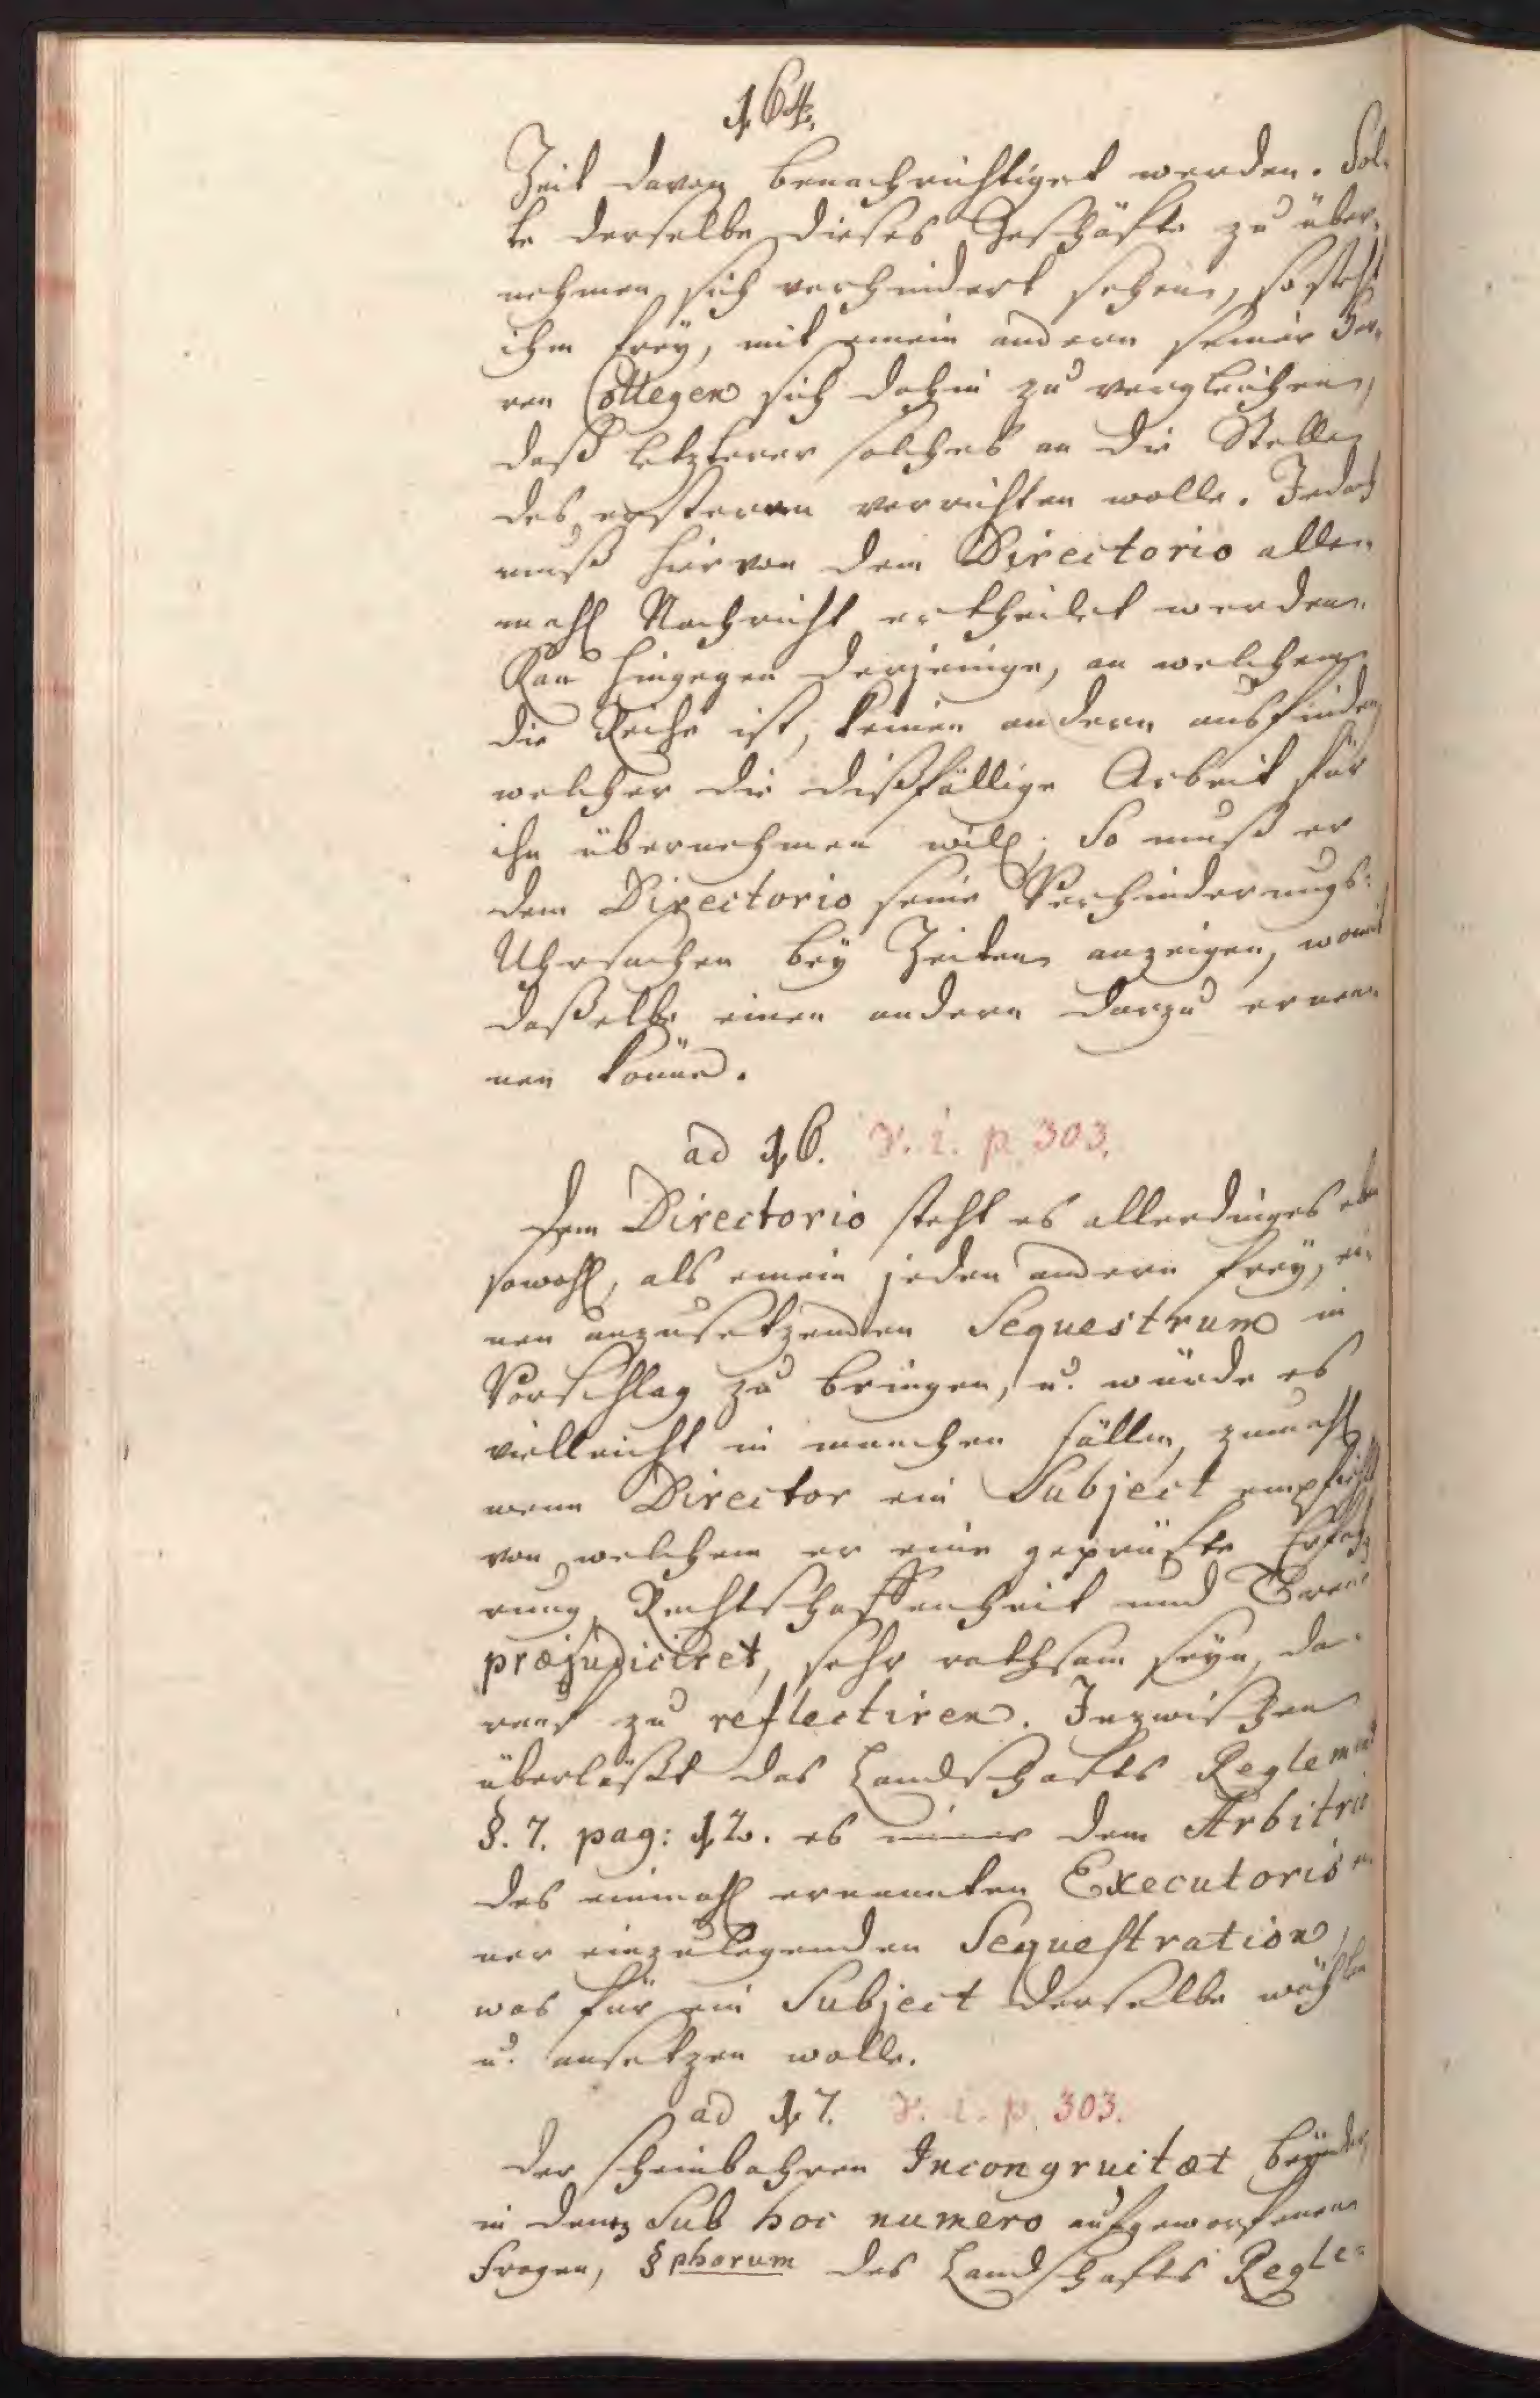 164.
Zeit davon benachrichtiget werden. Sol-
te derselbe dieses Geschäfte zu über-
nehmen sich verhindert sehen, so steht
ihm frey, mit einem andern seiner Her-
ren Collegen sich dahin zu vergleichen,
daß letzterer solches an die Stelle
des ersteren verrichten wolle. Jedoch
muß hiervon dem Directorio alle-
mahl Nachricht ertheilet werden.
Kan hingegen derjenige, an welchem
die Reihe ist, keinen andern ausfinden,
welcher die dißfällige Arbeit für
ihn übernehmen will; So muß er
dem Directorio seine Verhinderungs-
Uhrsachen bey Zeiten anzeigen, womit
daßelbe einen andern darzu ernen-
nen könne.
ad 16. V. i. p. 303.
Dem Directorio steht es allerdinges eben
sowohl, als einem jeden andern frey, ei-
nen anzusetzenden Sequestrum in
Vorschlag zu bringen, u. würde es
vielleicht in manchen Fällen, zumahl
wenn Director ein Subject empfiehlt
von welchem er eine geprüfte Erfah-
rung, Rechtschaffenheit und Treue
præjudiciret, sehr rathsam seyn, da-
rauf zu reflectiren. Inzwischen
überläßt das Landschafts Reglement
§. 7. pag: 12. es immer dem Arbitrio
des einmahl ernannten Executoris ei-
ner einzulegenden Sequestration,
was für ein Subject derselbe wählen
u. ansetzen wolle.
ad 17. V. i. p. 303.
Der scheinbahren Incongruitæt beyder
in denen Sub hoc numero aufgeworfenen
Fragen, §phorum des Landschafts Regle-